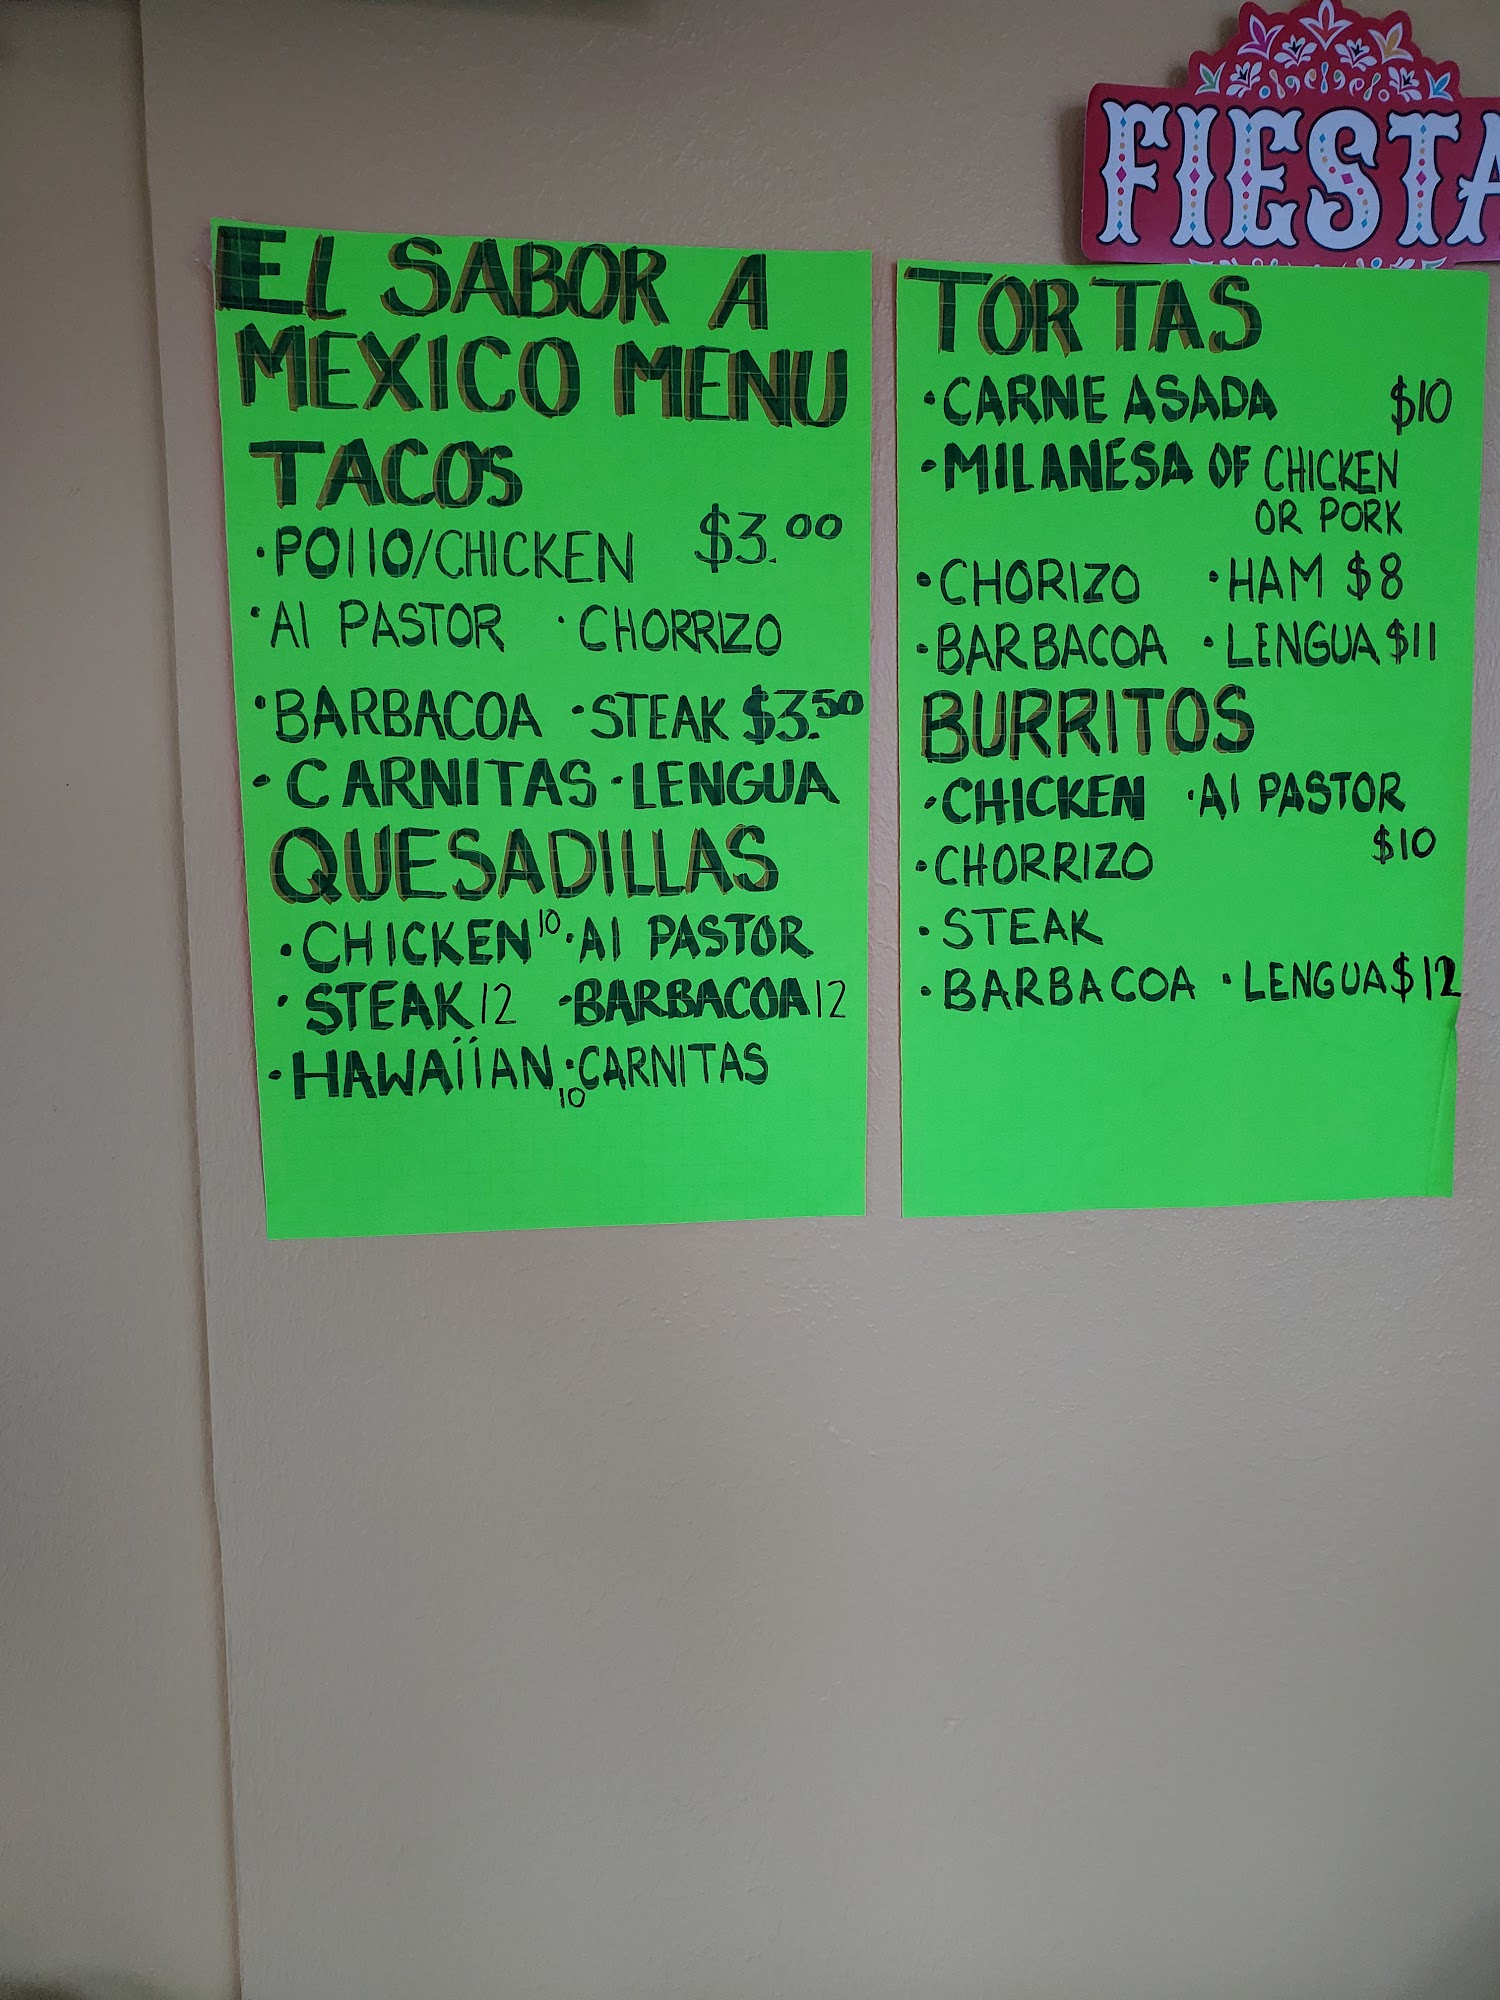 FIESTA
EL SABOR A
MEXICO MENU
TACOS
•POllO/CHICKEN $3.00
•Al PASTOR •CHORRIZO
•BARBACOA •STEAK $3.50
•CARNITAS •LENGUA
QUESADILLAS
•CHICKEN 10 •Al PASTOR
•STEAK 12 •BARBACOA 12
•HAWAIIAN 10 •CARNITAS
TORTAS
•CARNE ASADA $10
•MILANESA OF CHICKEN
OR PORK
•CHORIZO •HAM $8
•BARBACOA •LENGUA $11
BURRITOS
•CHICKEN •Al PASTOR
$10
•CHORRIZO
•STEAK
•BARBACOA •LENGUA $12